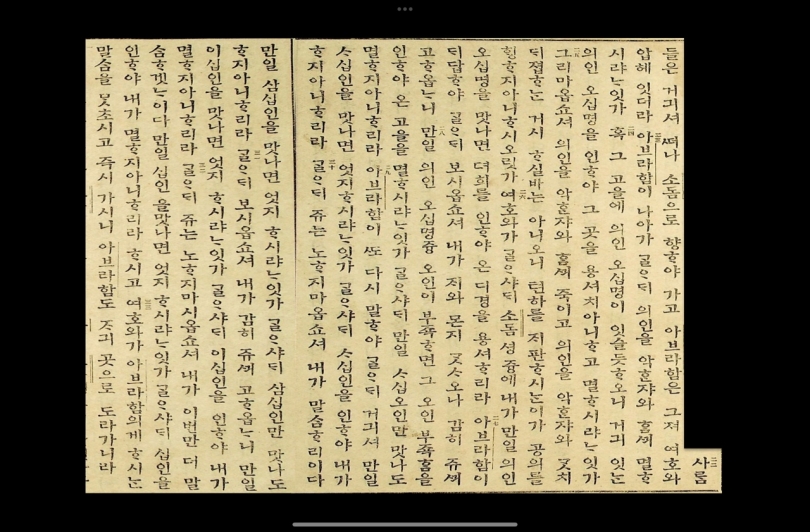 二二 사ᄅᆞᆷ
들은 거긔셔 떠나 소돔으로 향ᄒᆞ야 가고 아브라함은 그져 여호와
압헤 잇더라 二三 아브라함이 나아가 ᄀᆞᆯᄋᆞᄃᆡ 의인을 악ᄒᆞᆫ쟈와 홈ᄭᅴ 멸ᄒᆞ
시랴ᄂᆞ잇가 二四 혹 그 고을에 의인 오십명이 잇슬듯ᄒᆞ오니 거긔 잇ᄂᆞᆫ
의인 오십명을 인ᄒᆞ야 그 곳을 용셔치아니ᄒᆞ고 멸ᄒᆞ시랴ᄂᆞ잇가
二五 그리마옵쇼셔 의인을 악ᄒᆞᆫ쟈와 홈ᄭᅴ 죽이고 의인을 악ᄒᆞᆫ쟈와 ᄀᆞᆺ치
ᄃᆡ졉ᄒᆞᄂᆞᆫ 거시 ᄒᆞ실바ᄂᆞᆫ 아니오니 텬하를 ᄌᆡ판ᄒᆞ시ᄂᆞᆫ이가 공의를
ᄒᆡᆼᄒᆞ지아니ᄒᆞ시오릿가 二六 여호와가 ᄀᆞᆯᄋᆞ샤ᄃᆡ 소돔 셩 즁에 내가 만일 의인
오십명을 맛나면 뎌희를 인ᄒᆞ야 온 디경을 용셔ᄒᆞ리라 二七 아브라함이
ᄃᆡ답ᄒᆞ야 ᄀᆞᆯᄋᆞᄃᆡ 보시옵쇼셔 내가 ᄌᆡ와 몬지 ᄀᆞᆺᄉᆞ오나 감히 쥬ᄭᅴ
고ᄒᆞ옵ᄂᆞ니 二八 만일 의인 오십명즁 오인이 부죡ᄒᆞ면 그 오인 부죡홈을
인ᄒᆞ야 온 고을을 멸ᄒᆞ시랴ᄂᆞ잇가 ᄀᆞᆯᄋᆞ샤ᄃᆡ 만일 ᄉᆞ십오인만 맛나도
멸ᄒᆞ지아니ᄒᆞ리라 二九 아브라함이 ᄯᅩ 다시 말ᄒᆞ야 ᄀᆞᆯᄋᆞᄃᆡ 거긔셔 만일
ᄉᆞ십인을 맛나면 엇지ᄒᆞ시랴ᄂᆞ잇가 ᄀᆞᆯᄋᆞ샤ᄃᆡ ᄉᆞ십인을 인ᄒᆞ야 내가
ᄒᆞ지아니ᄒᆞ리라 三十 ᄀᆞᆯᄋᆞᄃᆡ 쥬는 노ᄒᆞ지마옵쇼셔 내가 말ᄉᆞᆷᄒᆞ리이다
만일 삼십인을 맛나면 엇지 ᄒᆞ시랴ᄂᆞ잇가 ᄀᆞᆯᄋᆞ샤ᄃᆡ 삼십인만 맛나도
ᄒᆞ지아니ᄒᆞ리라 三一 ᄀᆞᆯᄋᆞᄃᆡ 보시옵쇼셔 내가 감히 쥬ᄭᅴ 고ᄒᆞ옵ᄂᆞ니 만일
이십인을 맛나면 엇지 ᄒᆞ시랴ᄂᆞ잇가 ᄀᆞᆯᄋᆞ샤ᄃᆡ 이십인을 인ᄒᆞ야 내가
멸ᄒᆞ지아니ᄒᆞ리라 三二 ᄀᆞᆯᄋᆞᄃᆡ 쥬는 노ᄒᆞ지마시옵쇼셔 내가 이번만 더 말
ᄉᆞᆷᄒᆞ겟ᄂᆞ이다 만일 십인을맛나면 엇지 ᄒᆞ시랴ᄂᆞ잇가 ᄀᆞᆯᄋᆞ샤ᄃᆡ 십인을
인ᄒᆞ야 내가 멸ᄒᆞ지아니ᄒᆞ리라 ᄒᆞ시고 三三 여호와가 아브라함의게 ᄒᆞ시ᄂᆞᆫ
말ᄉᆞᆷ을 ᄆᆞᆺ초시고 즉시 가시니 아브라함도 ᄌᆞ긔 곳으로 도라가니라